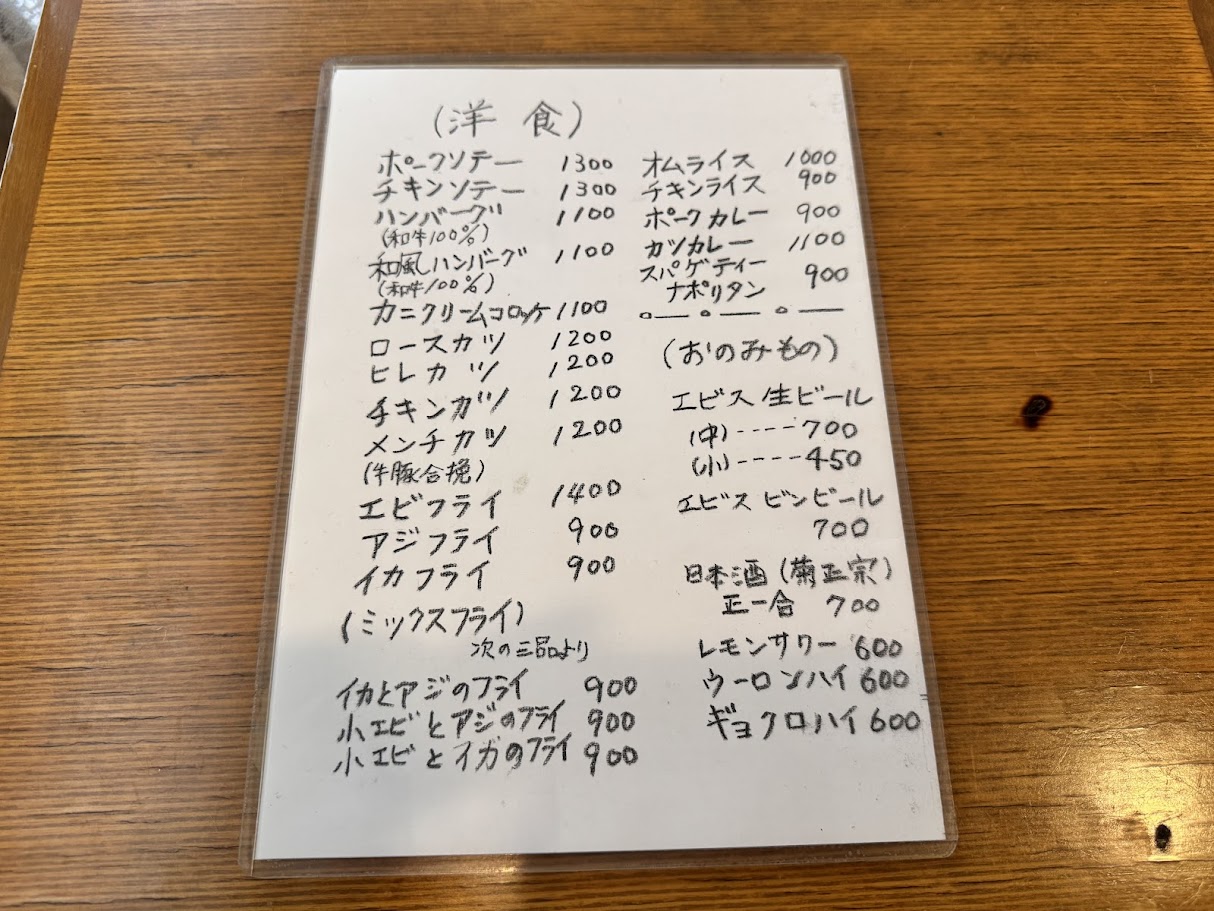 (洋食)
ポークソテー 1300
チキンソテー 1300
ハンバーグ 1100
(和牛100%)
和風ハンバーグ 1100
(和牛100%)
カニクリームコロッケ 1100
ロースカツ 1200
ヒレカツ 1200
チキンカツ 1200
メンチカツ 1200
(牛豚合挽)
エビフライ 1400
アジフライ 900
イカフライ 900
(ミックスフライ)
次の三品より
イカとアジのフライ 900
小エビとアジのフライ 900
小エビとイカのフライ 900
オムライス 1000
チキンライス 900
ポークカレー 900
カツカレー 1100
スパゲティー
ナポリタン 900
(おのみもの)
エビス生ビール
(中)----700
(小)----450
エビス ビンビール
700
日本酒(菊正宗)
正一合 700
レモンサワー 600
ウーロンハイ 600
ギョクロハイ 600